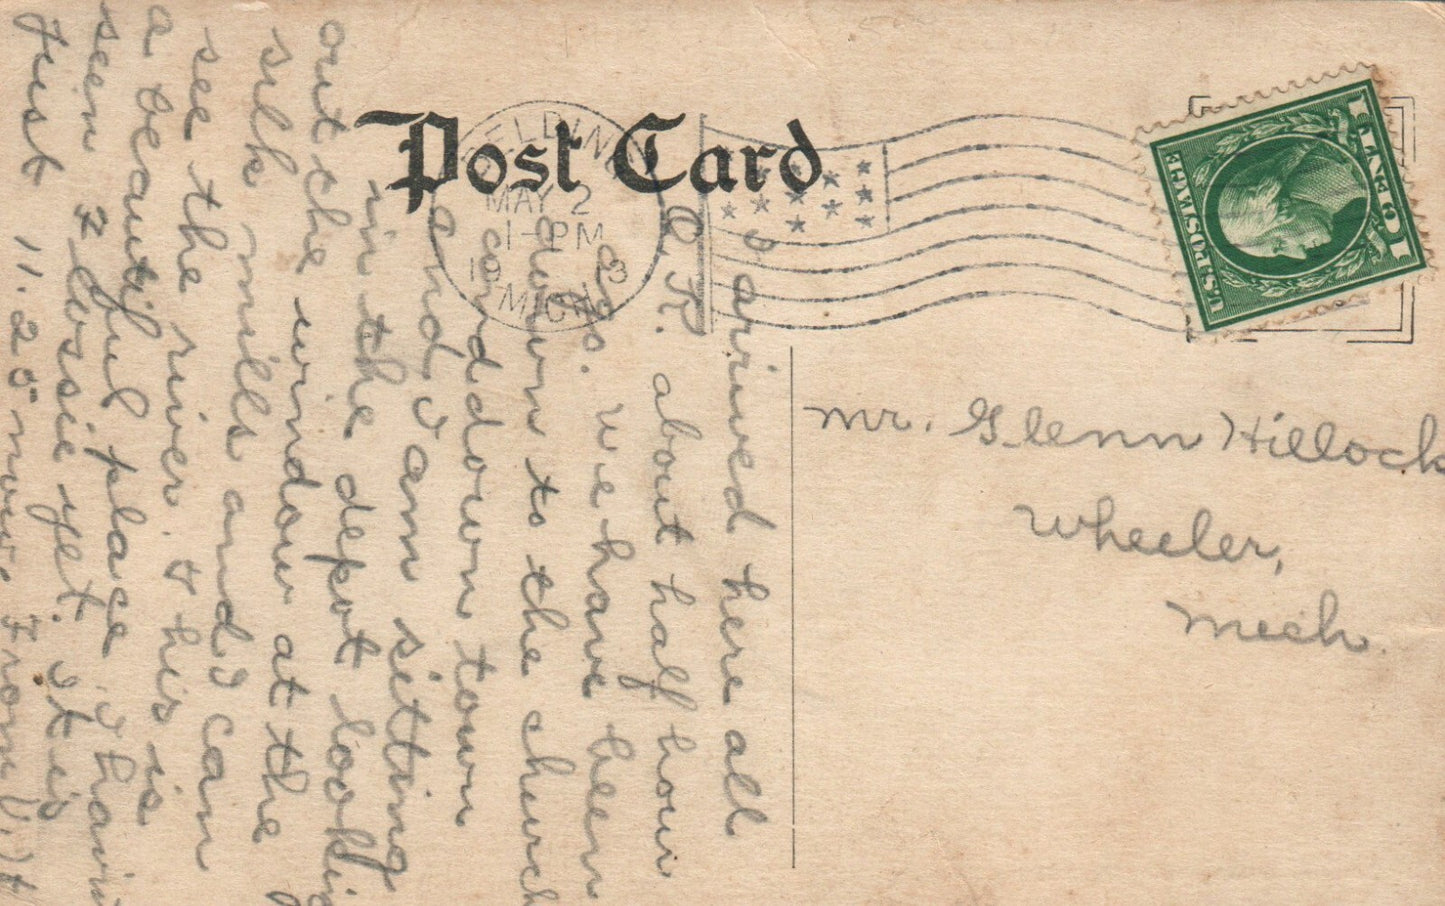 Post Card
BELDING
MAY 2
1-PM
MICH.
U.S. POSTAGE
1 CENT 1
Mr. Glenn Hillock
Wheeler,
Mich.
I arived here all
O.K. about half hour
ago. We have been
down to the church
and down town
and I am sitting
in the depot looking
out the window at the
silk mills and I can
see the river. This is
a beautiful place. I haven
seen Flossie yet. It is
just 11.25 now. From